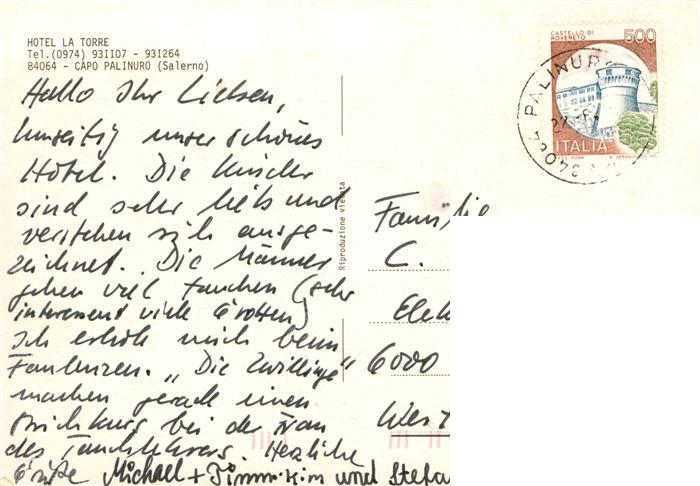 HOTEL LA TORRE
Tel.(0974) 931107 - 931264
84064 - CAPO PALINURO (Salerno)
Hallo Ihr Lieben,
umseitig unser schönes
Hotel. Die Kinder
sind sehr lieb und
verstehen sich ausge-
zeichnet. Die Männer
gehen viel tauchen (sehr
interessant viele Grotten)
Ich erhole mich beim
Faulenzen. „Die Zwillinge"
machen gerade einen
bei der Frau
des Tauchlehrers. Herzliche
Grüße Michael + Timm Kim und Stefa
Riproduzione vietata
CASTELLO DI
ROVERETO
500
ITALIA
PALINUR
Familie
C.
Elek
6000
West